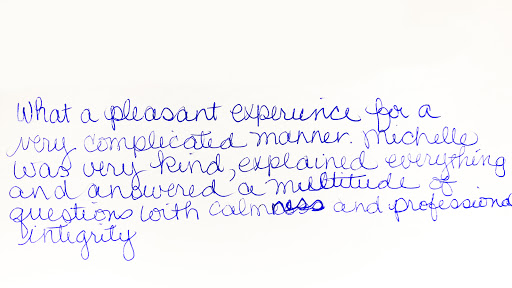 What a pleasant experience for a
very complicated manner. Michelle
was very kind, explained everything
and answered a multitude of
questions with calmness and professional
integrity